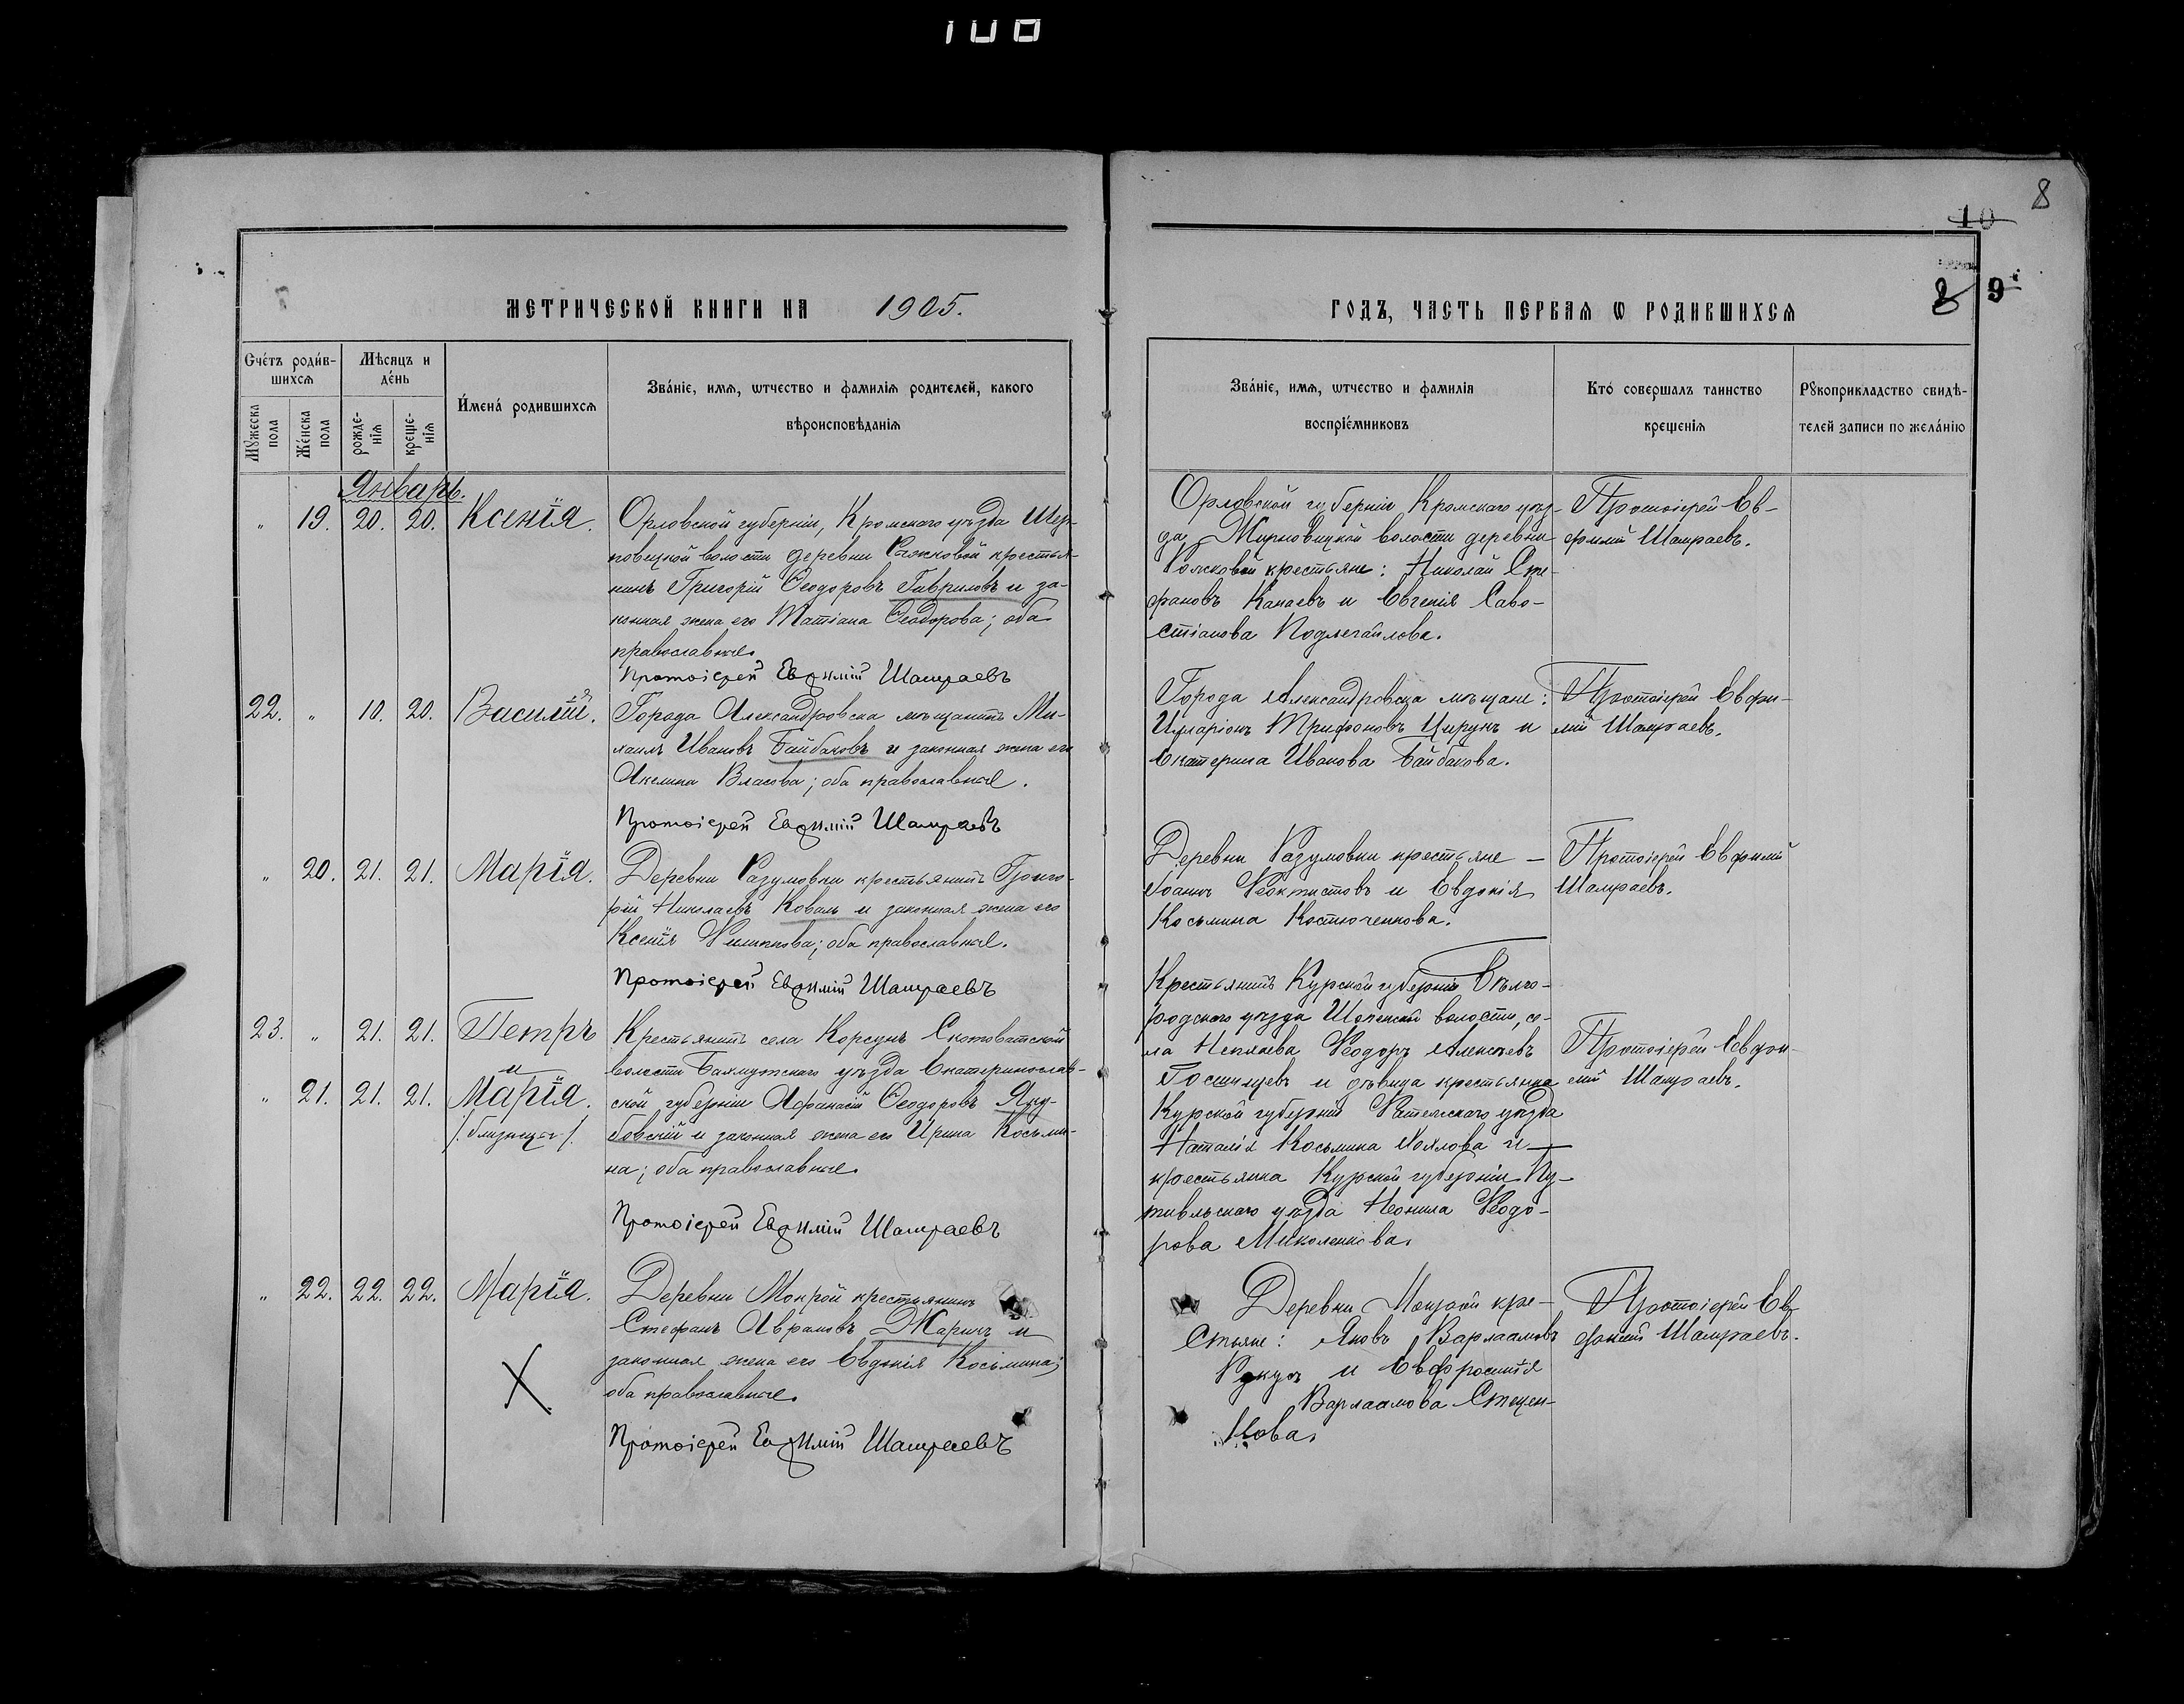 100
8
10
8 9
МЕТРИЧЕСКОЙ КНИГИ НА 1905.
ГОДЪ, ЧАСТЬ ПЕРВАѦ Ѡ РОДИВШИХСѦ
Счéтъ родúв-
шихсѧ
Мѣсяцъ и
дéнь
Мꙋжеска
пола
Жéнска
пола
рожде-
нїѧ
креще-
нїѧ
И́мена́ родившихсѧ
Зва́нїе, имѧ, ѡтчество и фамилїѧ родителей, какого
вѣроисповѣданїѧ
Зва́нїе, имѧ, ѡтчество и фамилїѧ
воспрїéмниковъ
Ктó совершалъ таинство
крещенїѧ
Рꙋкоприкладство свидѣ-
телей записи по жела́нїю
Январь.
" 19. 20. 20. Ксенія.
Орловской губерніи, Кромскаго уѣзда
волости деревни крестья-
нинъ Григорій Ѳеодоровъ Гавриловъ и за-
конная жена его Татіана Ѳеодорова; оба
православные.
Протоіерей Евѳимій Шамраевъ
Орловской губерніи Кромскаго уѣз-
да волости деревни
крестьяне: Николай Сте-
фановъ Канаевъ и Евгенія Саво-
стіанова
Протоіерей Ев-
фимій Шамраевъ.
22. " 10. 20. Василій.
Города Александровска мѣщанинъ Ми-
хаилъ Ивановъ Байбаковъ и законная жена его
Акелина Власова; оба православные.
Протоіерей Евѳимій Шамраевъ
Города Александровска мѣщане:
Илларіонъ Трифоновъ Цирунъ и
Екатерина Иванова Байбакова.
Протоіерей Евфи-
мій Шамраевъ.
" 20. 21. 21. Марія.
Деревни Разумовки крестьянинъ Григо-
рій Николаевъ Коваль и законная жена его
Ксенія Филиппова; оба православные.
Протоіерей Евѳимій Шамраевъ
Деревни Разумовки крестьяне —
Іоаннъ Ѳеоктистовъ и Евдокія
Косьмина Костюченкова.
Протоіерей Евфимій
Шамраевъ.
23. " 21. 21. Петръ
и
" 21. 21. 21. Марія.
/близнецы/.
Крестьянинъ села Корсунь Скотоватской
волости Бахмутскаго уѣзда Екатеринослав-
ской губерніи Аѳанасій Ѳеодоровъ Яку-
бовскій и законная жена его Ирина Косьми-
на; оба православные.
Протоіерей Евѳимій Шамраевъ
Крестьянинъ Курской губерніи Бѣлго-
родскаго уѣзда волости, се-
ла Ѳеодоръ Алексѣевъ
и дѣвица крестьянка
Курской губерніи уѣзда
Наталія Косьмина и —
крестьянка Курской губерніи Пу-
тивльскаго уѣзда Неонила Ѳеодо-
рова Миколенкова.
Протоіерей Евфи-
мій Шамраевъ.
" 22. 22. 22. Марія.
Деревни Мокрой крестьянинъ
Стефанъ Аврамовъ Жаринъ и
законная жена его Евдокія Косьмина;
оба православные.
Протоіерей Евѳимій Шамраевъ
Деревни Мокрой кре-
стьяне: Яковъ Варлаамовъ
и Евфросинія
Варлаамова Стецен-
кова.
Протоіерей Ев-
фимій Шамраевъ.